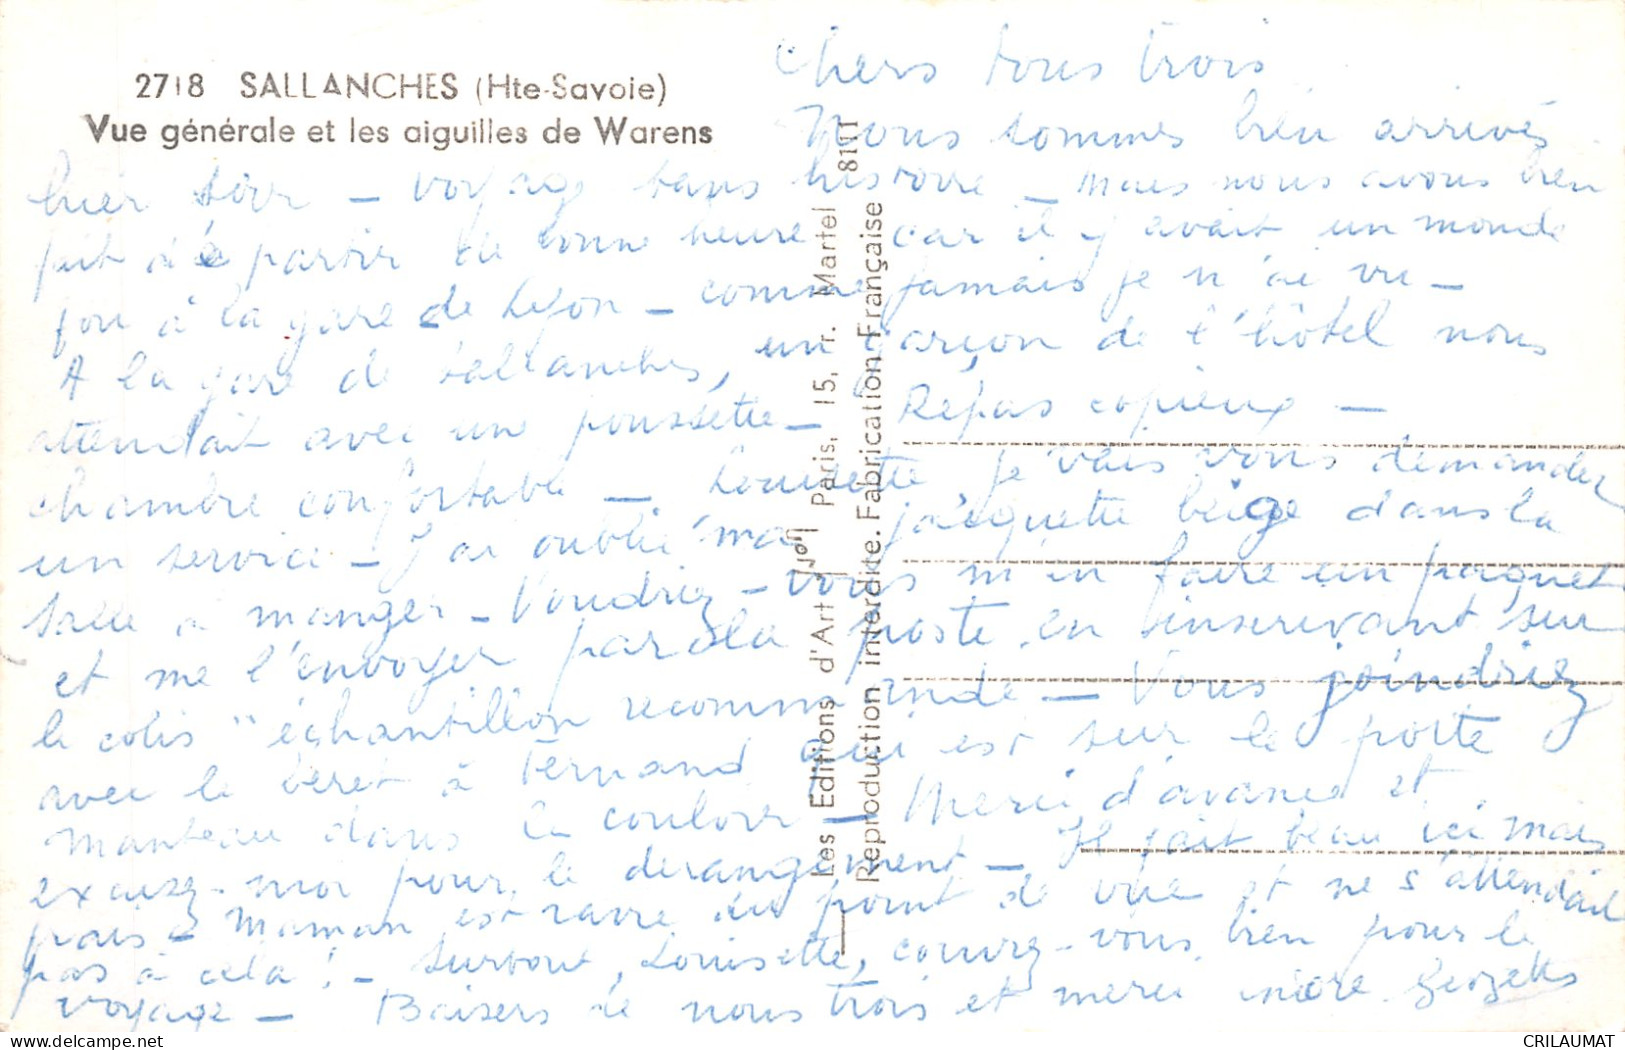 2718 SALLANCHES (Hte-Savoie)
Vue générale et les aiguilles de Warens
Chers tous trois
Nous sommes bien arrivés
hier soir - voyage sans histoire - Mais nous avons bien
fait de partir de bonne heure car il y avait un monde
fou à la gare de Lyon - comme jamais je n'ai vu -
A la gare de Sallanches, un garçon de l'hôtel nous
attendait avec une poussette - Repas copieux -
chambre confortable - Louisette je vais vous demander
un service - J'ai oublié ma jaquette beige dans la
salle à manger - Voudriez-vous m'en faire un paquet
et me l'envoyer par la poste en inscrivant sur
le colis "échantillon recommandé - Vous joindriez
avec le béret à Fernand qui est sur le porte
manteau dans le couloir - Merci d'avance et
excusez-moi pour le derangement - Il fait beau ici mais
frais - Maman est ravie du point de vue et ne s'attendait
pas à cela ! - Surtout, Louisette, couvrez-vous bien pour le
voyage - Baisers de nous trois et merci encore. Georgette
Les Editions d'Art Yvon Paris, 15, r. Martel 8111
Reproduction interdite. Fabrication Française
CRILAUMAT